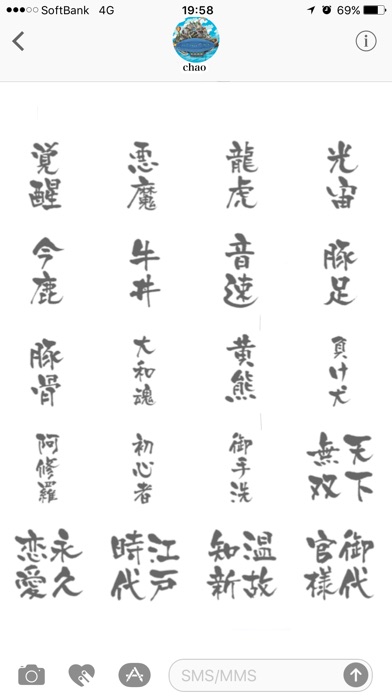 SoftBank 4G 19:58 69%
chao
覚醒 悪魔 龍虎 光宙
今鹿 牛丼 音速 豚足
豚骨 大和魂 黄熊 負け犬
阿修羅 初心者 御手洗 天下無双
永久恋愛 江戸時代 温故知新 御代官様
SMS/MMS